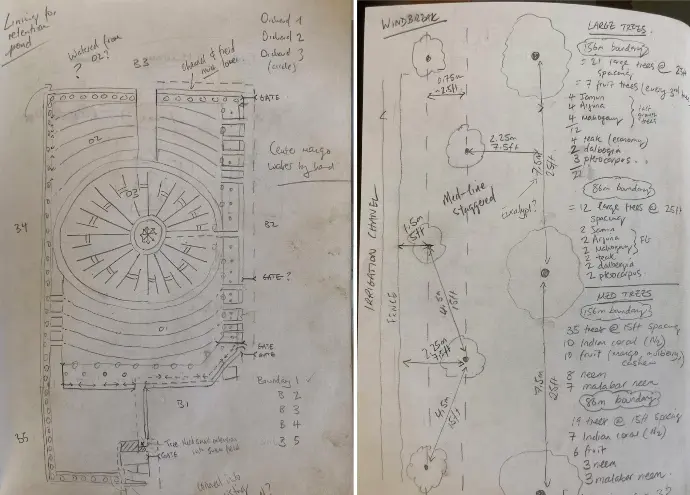 Lining for
retention
pond
Orchard 1
Orchard 2
Orchard 3
(circle)
Watered from
O2?
?
B3
GATE
O2
O3
B4
B2
Centre mango
water by hand
GATE?
O1
GATE
GATE
Boundary 1 ✓
B 2
B 3
B 4
B 5
B1
B5
GATE
WINDBREAK
0.75m
~2.5ft
2.25m
7.5ft
Med-line
staggered
7.5m
25ft
IRRIGATION CHANNEL
FENCE
1.5m
5ft
4.5m
15ft
2.25m
7.5ft
4.5m
15ft
7.5m
25ft
LARGE TREES
156m boundary
= 21 large trees @ 25ft
spacing
= 7 fruit trees
4 Jamun
4 Arjuna
4 Mahogany
12
4 teak (economy)
2 dalbergia
3 pterocarpus
86m boundary
= 12 large trees @ 25ft
spacing
2 Jamun
2 Arjuna
2 Mahogany
2 teak
2 dalbergia
2 pterocarpus
MED TREES
156m boundary
35 trees @ 15ft spacing
10 Indian coral (N2)
10 fruit (mango, mulberry,
cashew
8 neem
7 malabar neem
86m boundary
19 trees @ 15ft spacing
7 Indian coral (N2)
6 fruit
3 neem
3 malabar neem